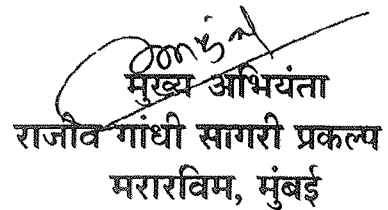 मुख्य अभियंता
राजीव गांधी सागरी प्रकल्प
मरारविम, मुंबई